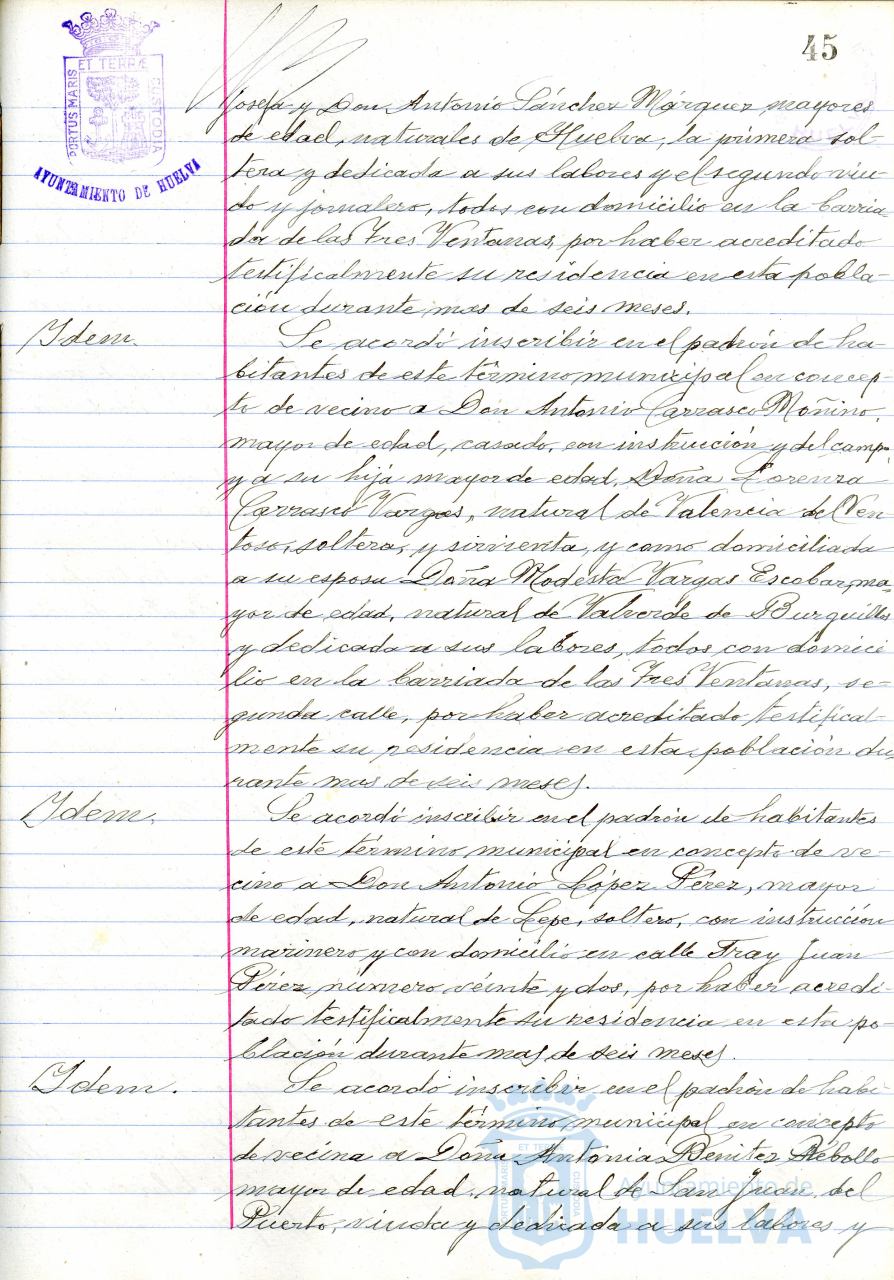 45
ET TERRÆ
PORTUS MARIS
CUSTODIA
AYUNTAMIENTO DE HUELVA
Josefa y Don Antonio Sánchez Márquez, mayores
de edad, naturales de Huelva, la primera sol-
tera y dedicada a sus labores y el segundo viu-
do y jornalero, todos con domicilio en la barria-
da de las Tres Ventanas, por haber acreditado
testificalmente su residencia en esta pobla-
ción durante mas de seis meses.
Idem.
Se acordó inscribir en el padrón de ha-
bitantes de este término municipal en concep-
to de vecino a Don Antonio Carrasco Moñino,
mayor de edad, casado, con instrucción y del campo
y a su hija mayor de edad, Doña Lorenza
Carrasco Vargas, natural de Valencia del Ven
toso, soltera, y sirvienta, y como domiciliada
a su esposa Doña Modesta Vargas Escobar, ma-
yor de edad, natural de Valverde de Burguillos
y dedicada a sus labores, todos con domici
lio en la barriada de las Tres Ventanas, se-
gunda calle, por haber acreditado testifical-
mente su residencia en esta población du-
rante mas de seis meses.
Idem.
Se acordó inscribir en el padrón de habitantes
de este término municipal en concepto de ve-
cino a Don Antonio López Pérez, mayor
de edad, natural de Lepe, soltero, con instrucción
marinero y con domicilio en calle Fray Juan
Pérez número veinte y dos, por haber acredi-
tado testificalmente su residencia en esta po-
blación durante mas de seis meses.
Idem.
Se acordó inscribir en el padrón de habi-
tantes de este término municipal en concepto
de vecina a Doña Antonia Benitez Rebollo
mayor de edad, natural de San Juan del
Puerto, viuda y dedicada a sus labores y
ET TERRÆ
PORTUS MARIS
CUSTODIA
Ayuntamiento de
HUELVA